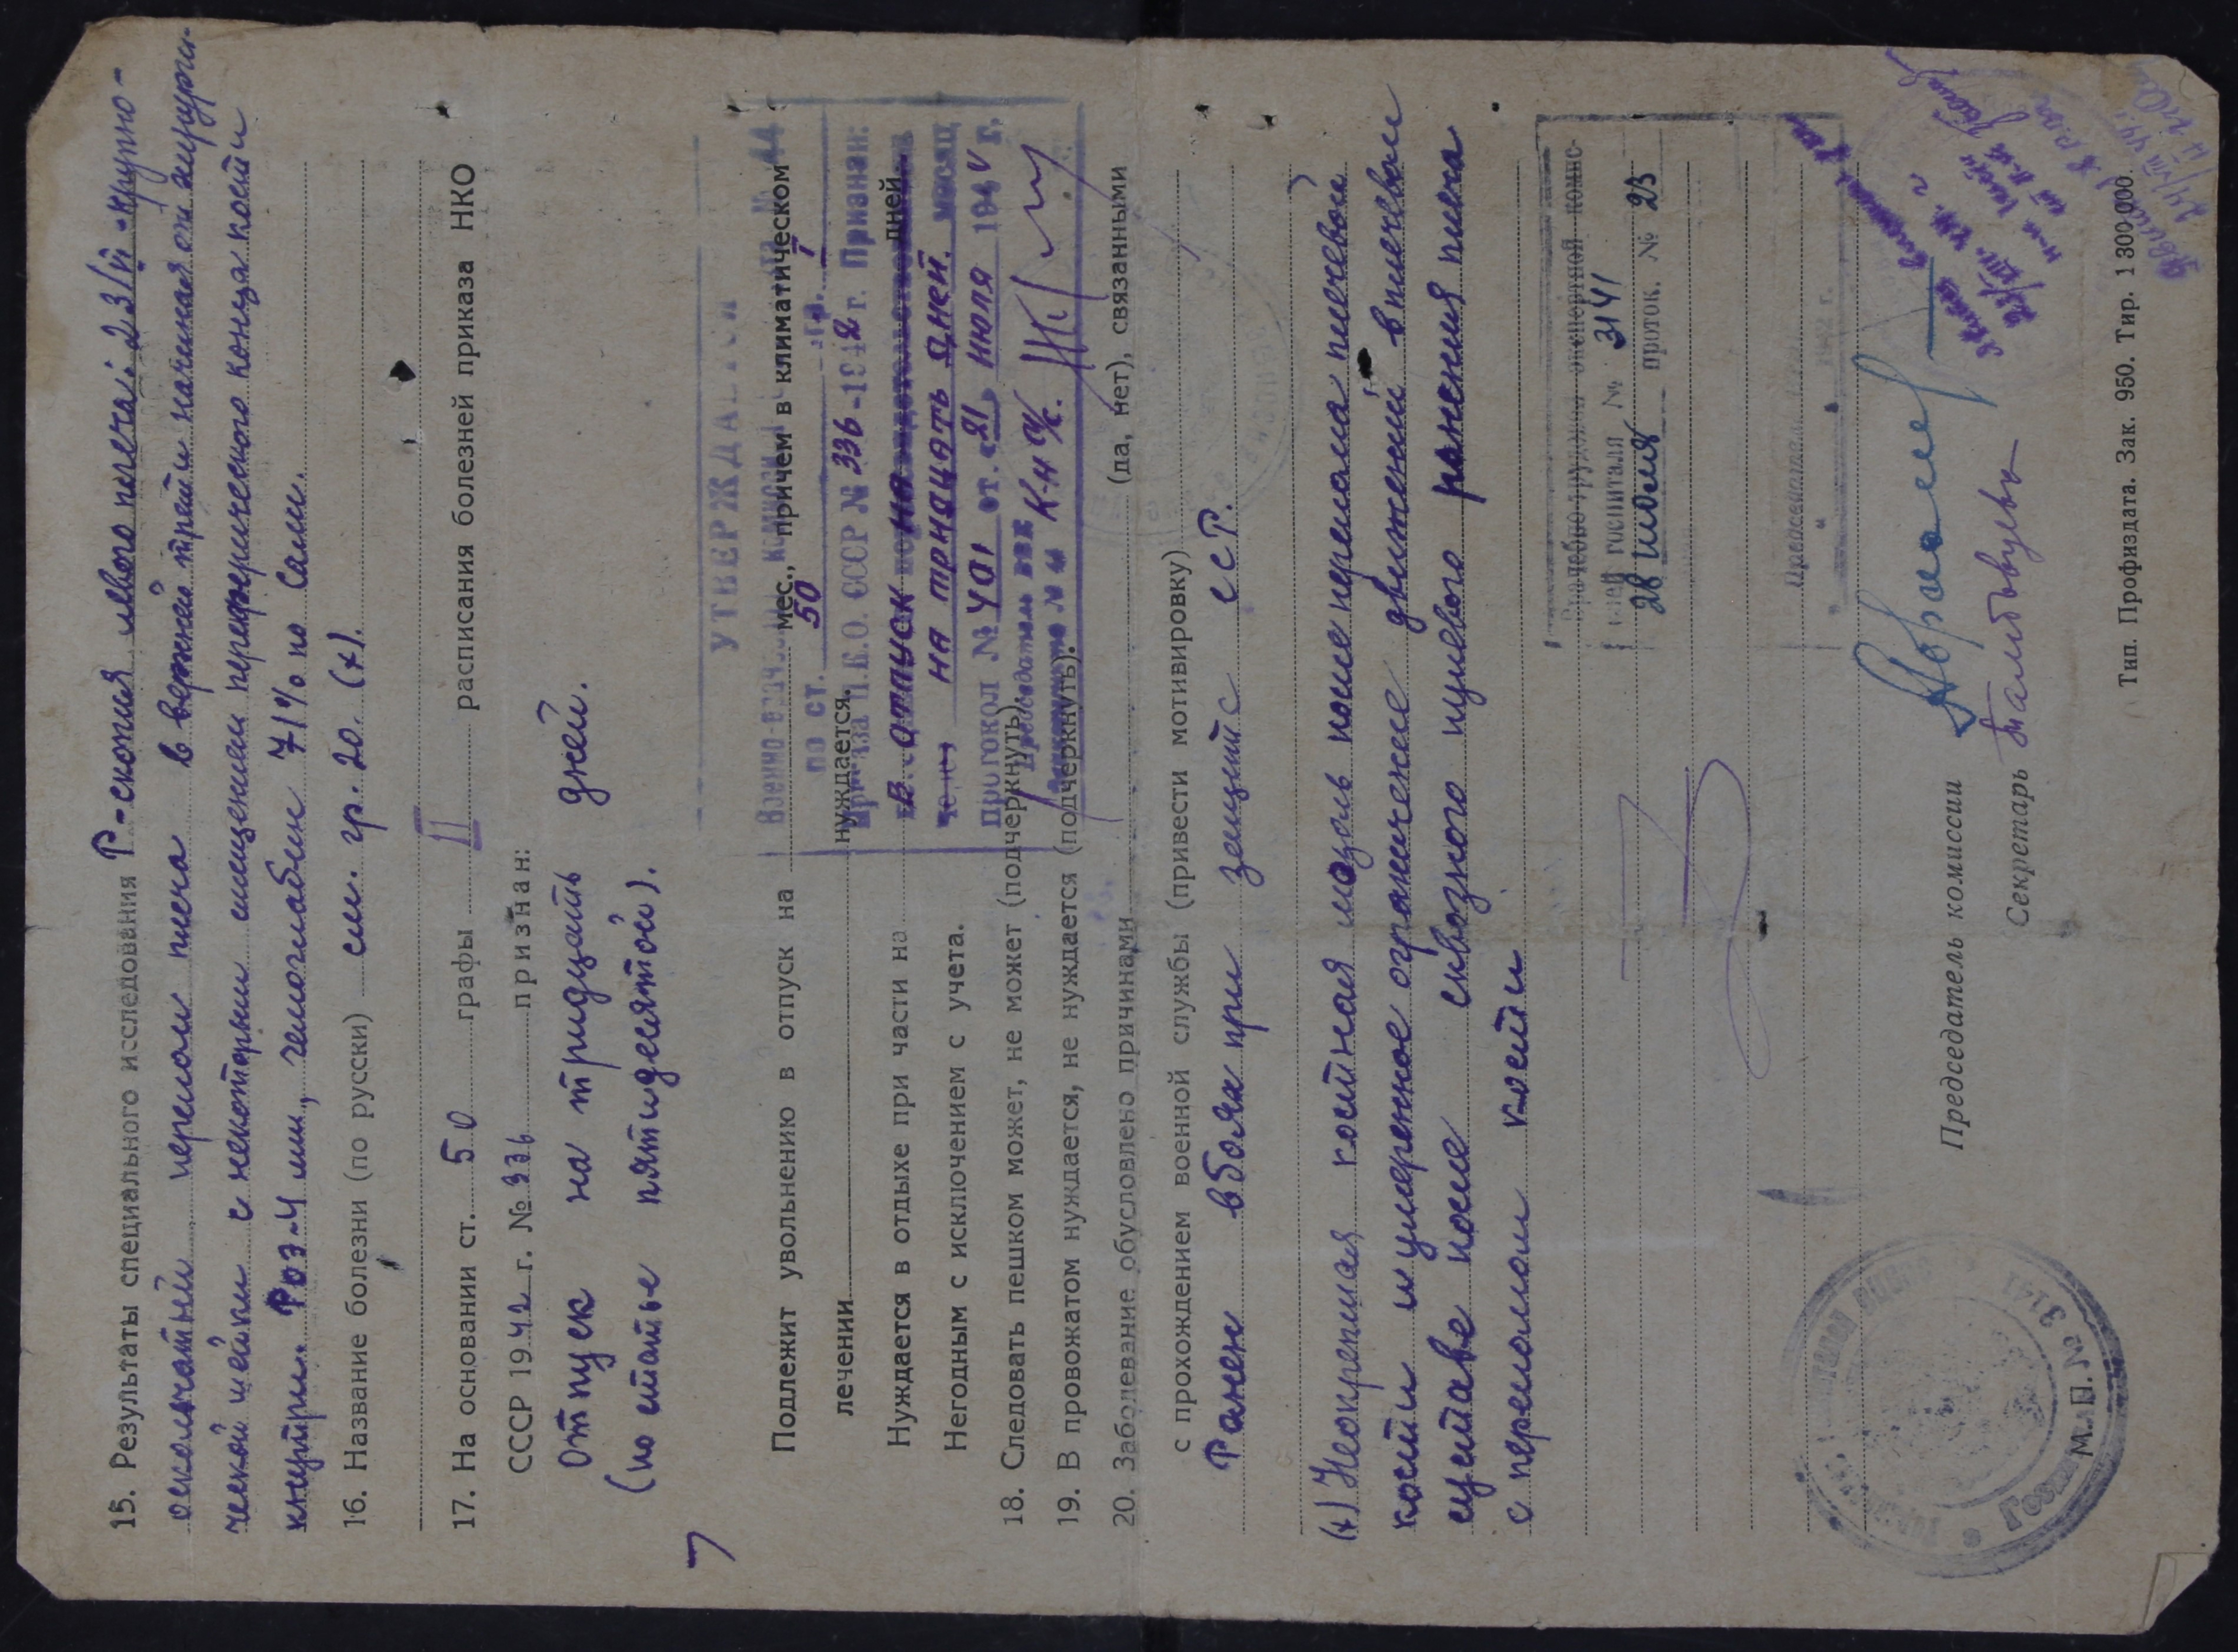 15. Результаты специального исследования Р-скопия левого плеча: 23/VI - крупно-
оскольчатый перелом плеча в верхней трети начиная от хирурги-
ческой шейки с некоторым смещением периферического конца кости
кнутри. Роэ-4 мм, гемоглабин 71% по Сали.
16. Название болезни (по русски) см. гр. 20. (х).
17. На основании ст. 50 графы II расписания болезней приказа НКО
СССР 1942 г. № 336 признан:
Отпуск на тридцать дней.
(по статье пятидесятой).
УТВЕРЖДА
по ст. 50 гр. I
Приказа Н.К.О. СССР № 336-1942 г. Признан:
в отпуск
на тридцать дней.
Протокол № 401 от „21" июля 194 г.
Председатель ВВК
Подлежит увольнению в отпуск на мес., причем в климатическом
лечении нуждается.
Нуждается в отдыхе при части на дней.
Негодным с исключением с учета.
18. Следовать пешком может, не может (подчеркнуть).
19. В провожатом нуждается, не нуждается (подчеркнуть).
20. Заболевание обусловлено причинами (да, нет), связанными
с прохождением военной службы (привести мотивировку)
Ранен в боях при защите ССР.
(х) Неокрепшая костная мозоль после перелома плечевой
кости и умеренное ограничение движений в плечевом
суставе после сквозного пулевого ранения плеча
с переломом кости
Врачебно-трудовой экспертной комис-
сией госпиталя № 3141
28 июля проток. № 23
Председатель
Председатель комиссии
Секретарь
М. П.
№ 3141
Тип. Профиздата. Зак. 950. Тир. 1 300 000.